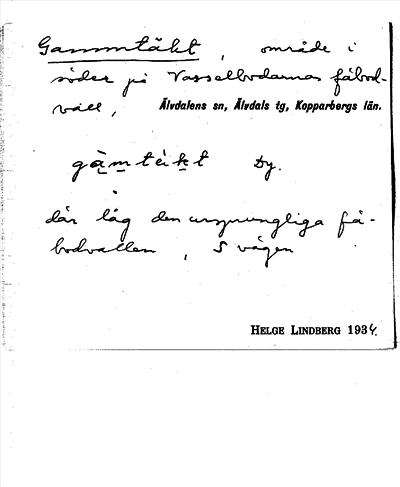 Gammtäkt, område i
söder på Vasselbodarnas fäbod-
vall, Älvdalens sn, Älvdals tg, Kopparbergs län.
gàm tèkt Dy.
där låg den ursprungliga fä-
bodvallen, S vägen
HELGE LINDBERG 1934.